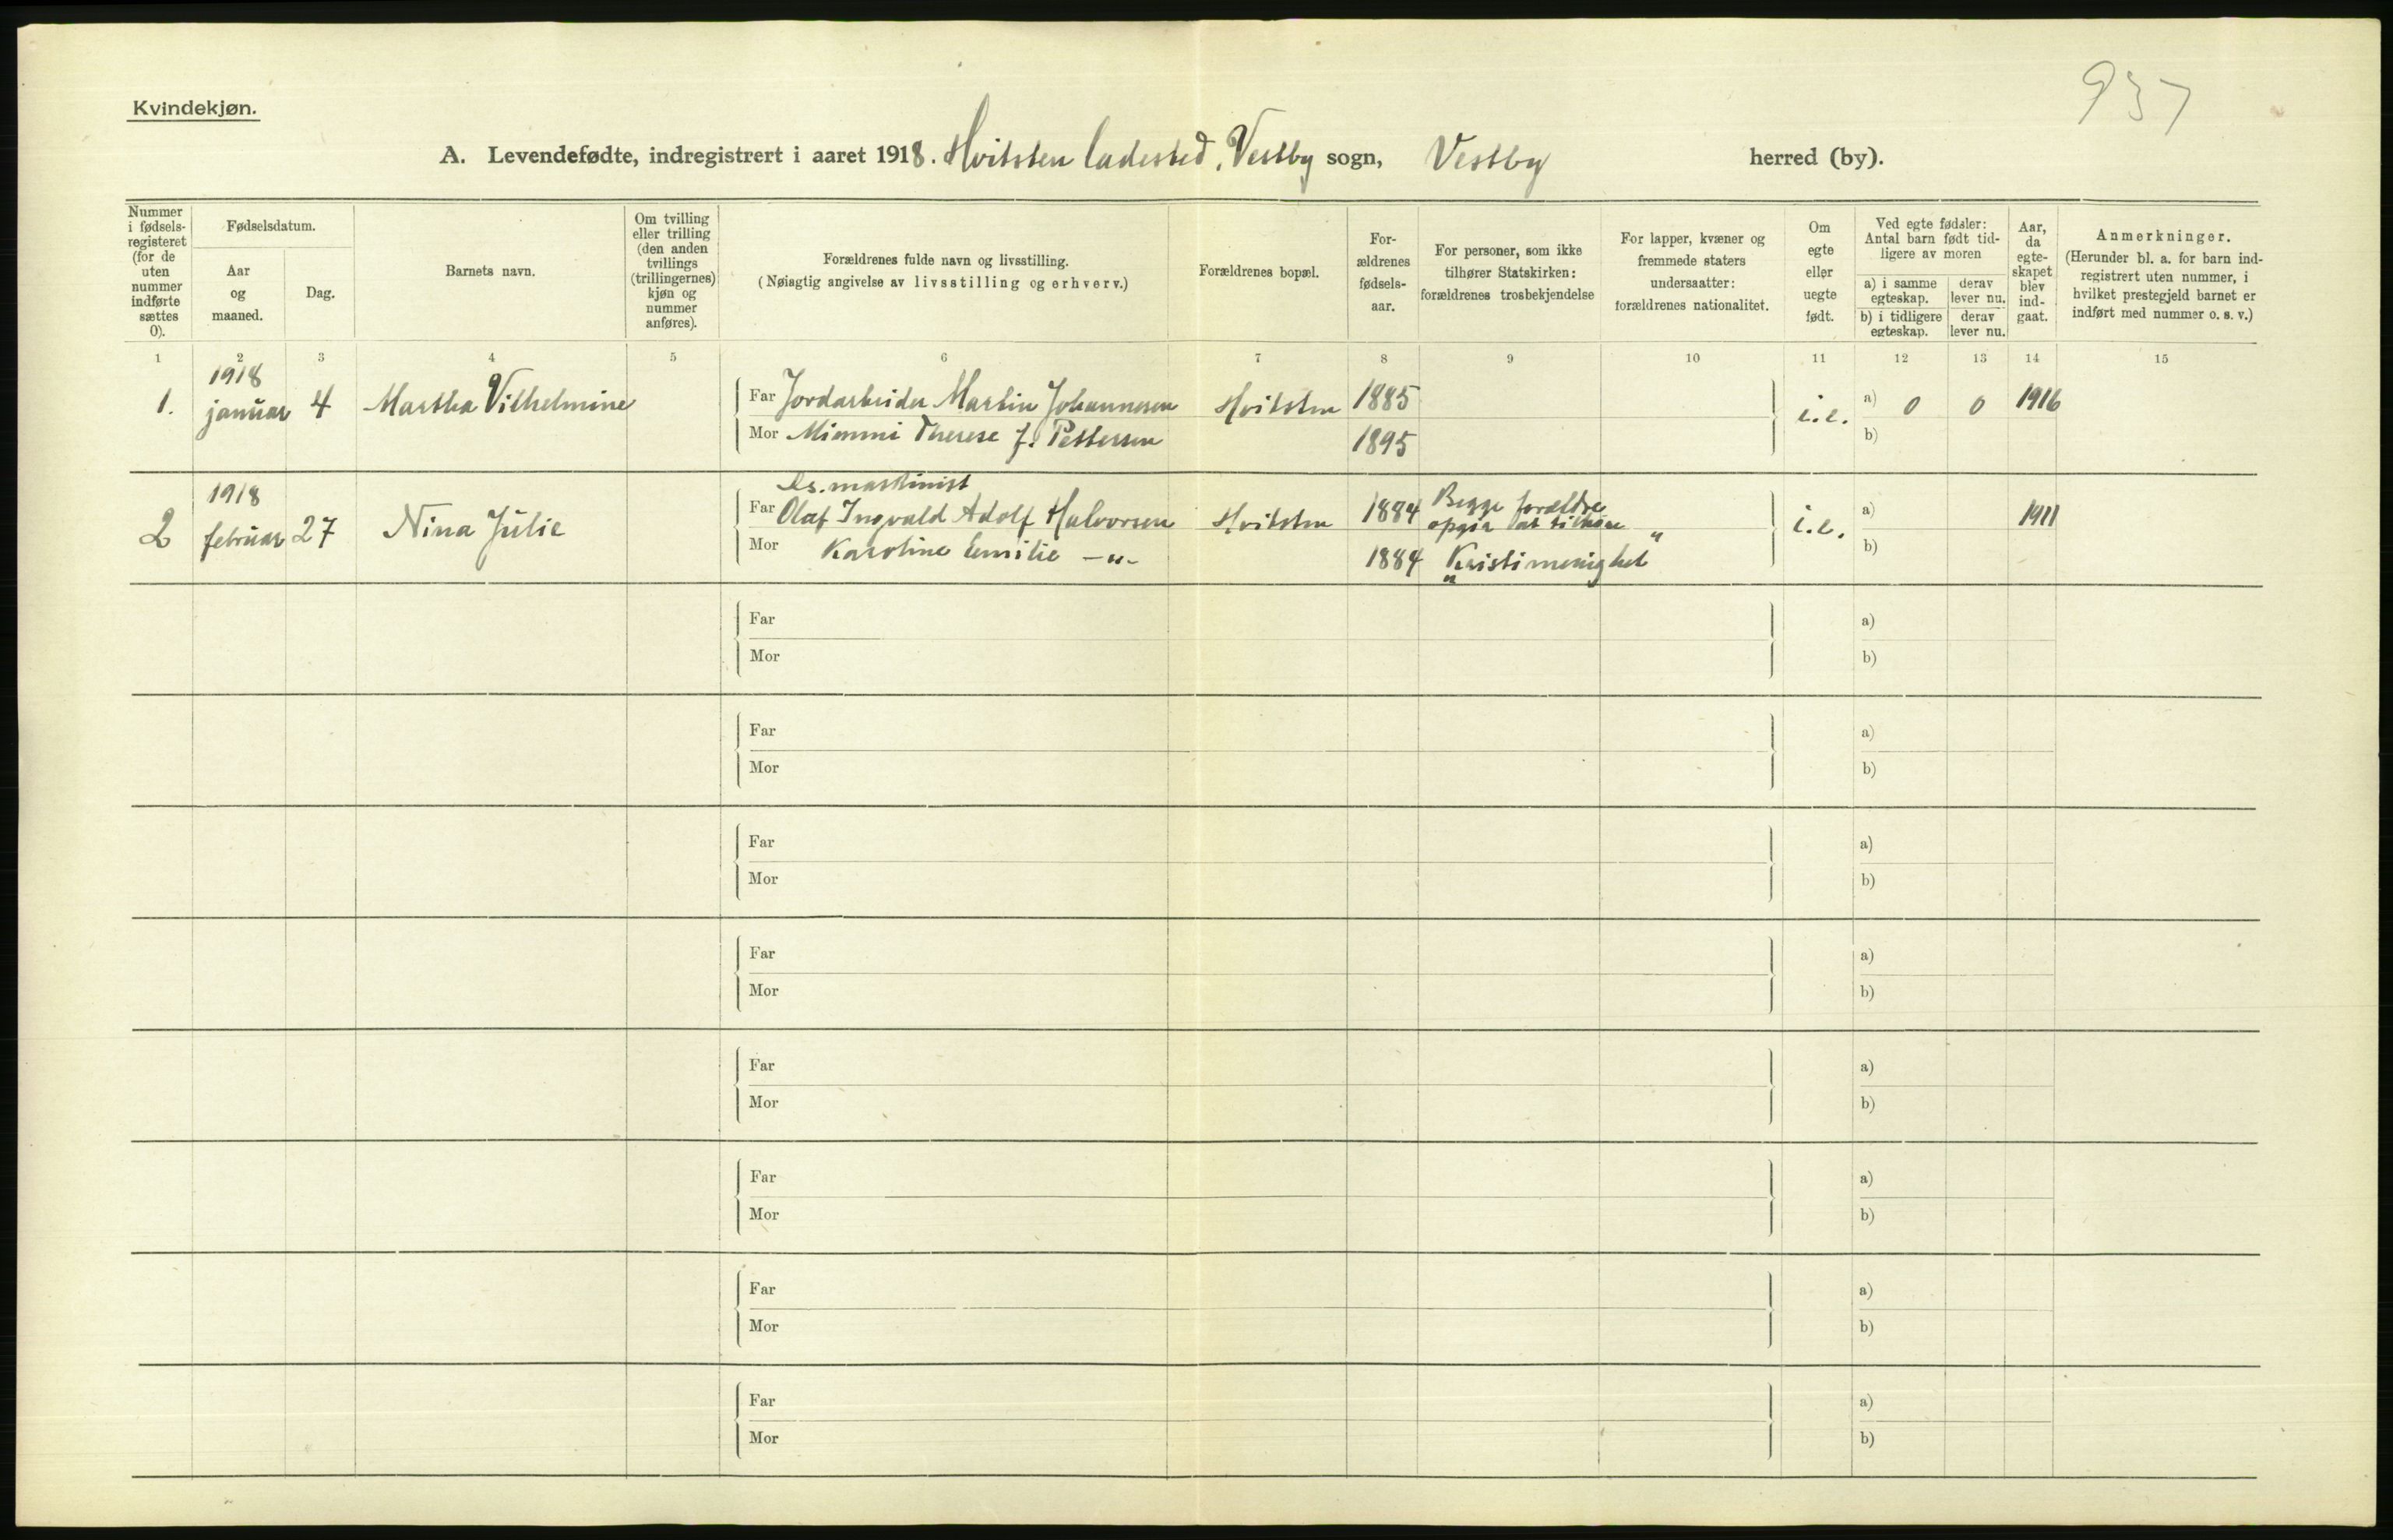 937
Kvindekjøn.
A. Levendefødte, indregistrert i aaret 1918. Hvitsten ladested, Vestby sogn, Vestby herred (by).
Nummer i fødselsregisteret (for de uten nummer indførte sættes 0).
Fødselsdatum.
Aar og maaned.
Dag.
Barnets navn.
Om tvilling eller trilling (den anden tvillings (trillingernes) kjøn og nummer anføres).
Forældrenes fulde navn og livsstilling.
(Nøiagtig angivelse av livsstilling og erhverv.)
Forældrenes bopæl.
For-ældrenes fødsels-aar.
For personer, som ikke tilhører Statskirken: forældrenes trosbekjendelse
For lapper, kvæner og fremmede staters undersaatter: forældrenes nationalitet.
Om egte eller uegte født.
Ved egte fødsler: Antal barn født tid-ligere av moren
a) i samme egteskap.
derav lever nu.
b) i tidligere egteskap.
derav lever nu.
Aar, da egte-skapet blev ind-gaat.
Anmerkninger.
(Herunder bl. a. for barn ind-registrert uten nummer, i hvilket prestegjeld barnet er indført med nummer o. s. v.)
1 2 3 4 5 6 7 8 9 10 11 12 13 14 15
1. 1918 januar 4 Martha Vilhelmine
Far Jordarbeider Martin Johannesen Hvitsten 1885 i.e. a) 0 0 1916
Mor Mimmi Therese f. Pettersen 1895 b)
2 1918 februar 27 Nina Julie
Ds. maskinist
Far Olaf Ingvald Adolf Halvorsen Hvitsten 1884 Begge forældre opgir at tilhøre i.e. a) 1911
Mor Karoline Emilie —"— 1884 "Kristi menighet" b)
Far a)
Mor b)
Far a)
Mor b)
Far a)
Mor b)
Far a)
Mor b)
Far a)
Mor b)
Far a)
Mor b)
Far a)
Mor b)
Far a)
Mor b)